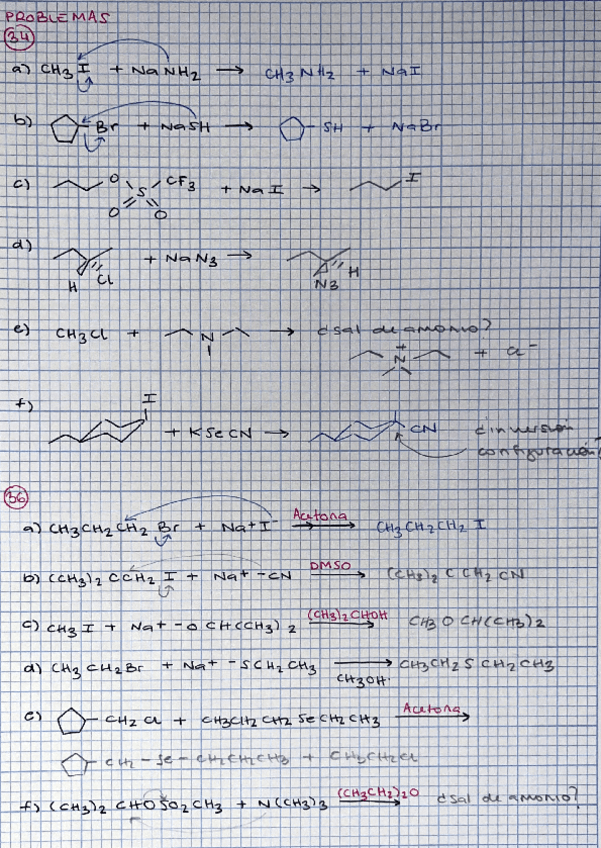 PROBLEMAS
34
a) CH3 I + Na NH2 → CH3 NH2 + NaI
b) Br + NaSH → SH + NaBr
c) O S CF3 O O + NaI → I
d) H Cl + NaN3 → N3 H
e) CH3Cl + N → ¿sal de amonio?
N + + Cl-
f) I + KSeCN → CN ¿inversión
configuración?
36
a) CH3CH2CH2 Br + Na+I- Acetona → CH3CH2CH2 I
b) (CH3)2 CCH2 I + Na+ -CN DMSO → (CH3)2 C CH2 CN
c) CH3 I + Na+ -O CH(CH3)2 (CH3)2 CHOH → CH3 O CH(CH3)2
d) CH3 CH2Br + Na+ -SCH2CH3 → CH3CH2 S CH2 CH3
CH3OH
e) CH2 Cl + CH3CH2 CH2 Se CH2CH3 Acetona →
CH2 - Se - CH2CH2CH3 + CH3CH2Cl
f) (CH3)2 CHO SO2 CH3 + N(CH3)3 (CH3CH2)2O → ¿sal de amonio?